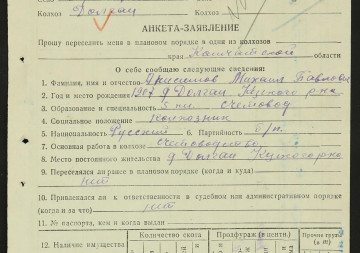 Колхоз Долган Колхоз
АНКЕТА-ЗАЯВЛЕНИЕ
Прошу переселить меня в плановом порядке в один из колхозов
края Камчатской области
О себе сообщаю следующие сведения:
1. Фамилия, имя и отчество Анисимов Михаил Павлович
2. Год и место рождения 1907 д Долган
3. Образование и специальность 5 кл счетовод
4. Социальное положение колхозник
5. Национальность Русский 6. Партийность б/п
7. Основная работа в колхозе счетоводство
8. Место постоянного жительства д Долган
9. Переселялся ли ранее в плановом порядке (когда и куда)
нет
10. Привлекался ли к ответственности в судебном или административном порядке
(когда и за что) нет
11. № паспорта, кем и когда выдан
12. Наличие имущества Количество скота Продфураж (в центн.) Прочие грузы
(в